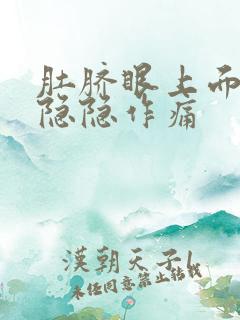 肚脐眼上而
隐隐作痛
漢朝天子l
未经同意禁止转载